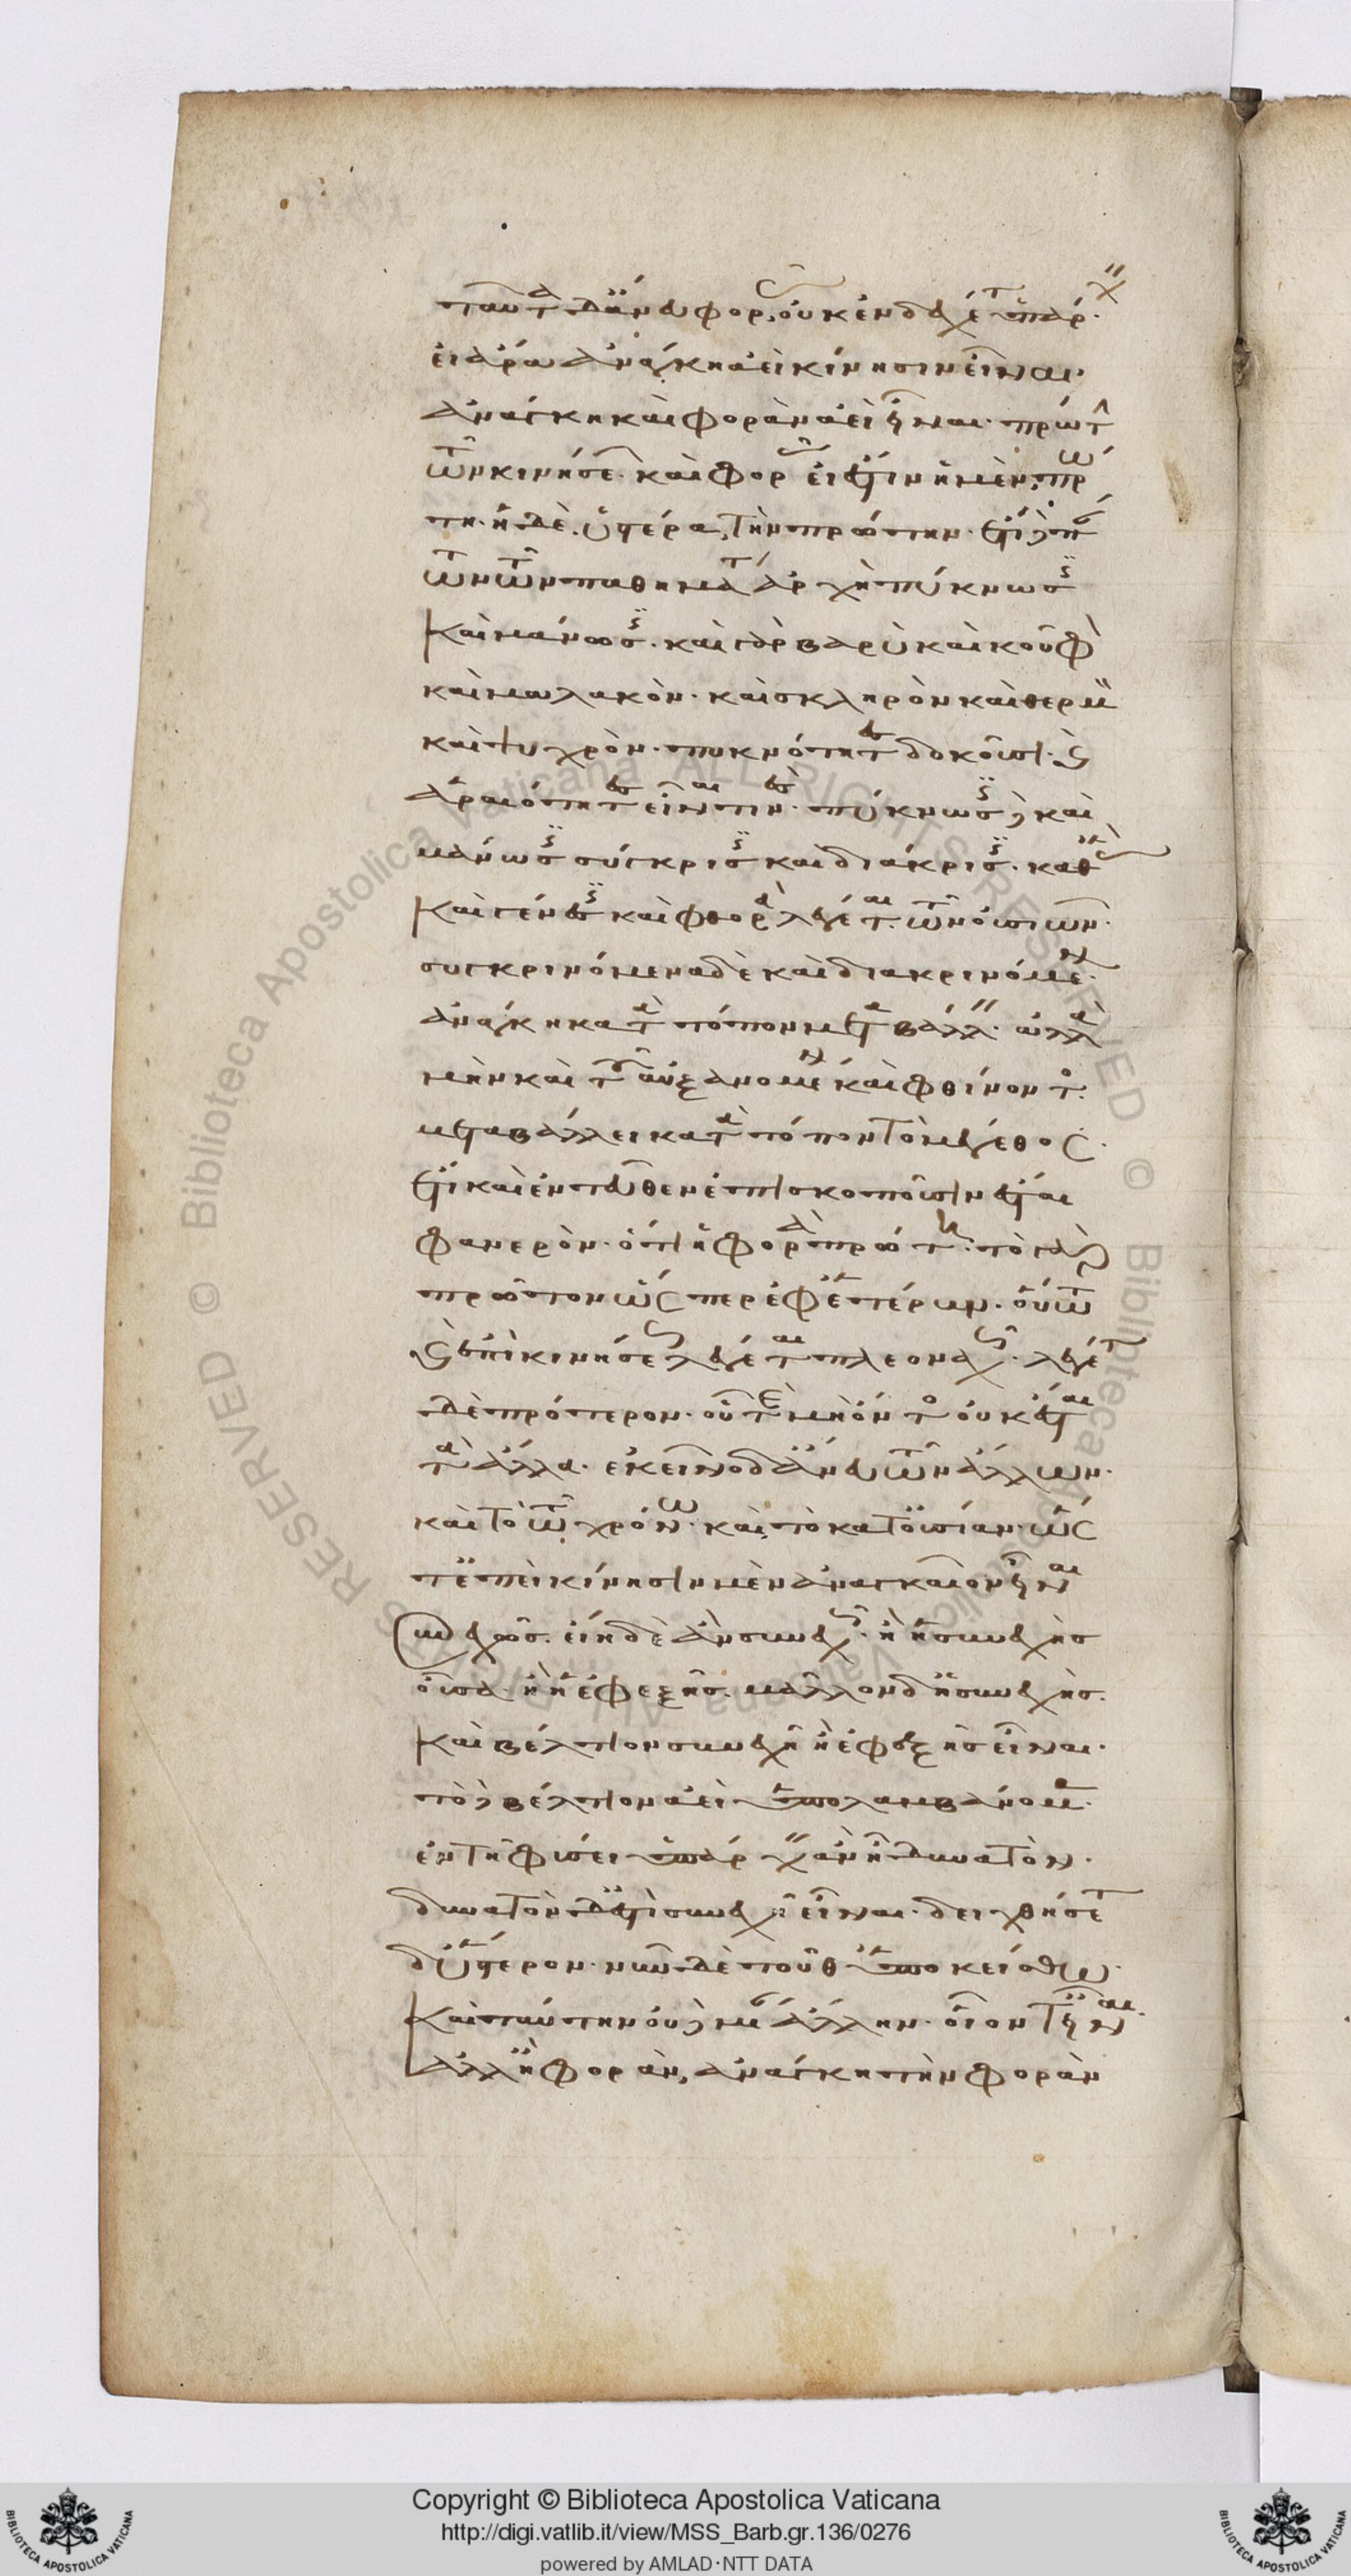 ταῦτα δ' ἄνευ φορᾶς οὐκ ἐνδέχεται ὑπάρχειν
εἰ ἄρα ἀνάγκη ἀεὶ κίνησιν εἶναι·
ἀνάγκη καὶ φορὰν ἀεὶ εἶναι· πρώτην
τῶν κινήσεων· καὶ φορᾶς εἰ ἔστιν ἡ μὲν πρώ
τη· ἡ δὲ ὑστέρα, τὴν πρώτην· ἔτι δὲ πάν
των τῶν παθημάτων ἀρχὴ πύκνωσις
καὶ μάνωσις· καὶ γὰρ βαρὺ καὶ κοῦφον
καὶ μαλακὸν· καὶ σκληρὸν καὶ θερμὸν
καὶ ψυχρὸν· πυκνότητες δοκοῦσι· καὶ
ἀραιότητες εἶναί τινες· πύκνωσις δὲ καὶ
μάνωσις σύγκρισις καὶ διάκρισις· καθ' ἃς
καὶ γένεσις καὶ φθορὰ λέγεται τῶν οὐσιῶν·
συγκρινόμενα δὲ καὶ διακρινόμενα·
ἀνάγκη κατὰ τόπον μεταβάλλειν· ἀλλὰ
μὴν καὶ τοῦ αὐξανομένου καὶ φθίνοντος
μεταβάλλει κατὰ τόπον τὸ μέγεθος·
ἔτι καὶ ἐντεῦθεν ἐπισκοποῦσιν ἔσται
φανερὸν· ὅτι ἡ φορὰ πρώτη· τὸ γὰρ
πρῶτον ὥσπερ ἐφ' ἑτέρων· οὕτω
καὶ ἐπὶ κινήσεως λέγεται πλεοναχῶς· λέγεται
δὲ πρότερον· οὗ τε μὴ ὄντος οὐκ ἔσται
τὰ ἄλλα· ἐκεῖνο δ' ἄνευ τῶν ἄλλων·
καὶ τὸ τῷ χρόνῳ· καὶ τὸ κατ' οὐσίαν· ὥς
τ' ἐπεὶ κίνησιν μὲν ἀναγκαῖον εἶναι
συνεχῶς· εἴη δὲ ἂν συνεχῶς· ἢ ἡ συνεχὴς
οὖσα· ἢ ἡ ἐφεξῆς· μᾶλλον δ' ἡ συνεχὴς·
καὶ βέλτιον συνεχῆ ἢ ἐφεξῆς εἶναι·
τὸ δὲ βέλτιον ἀεὶ ὑπολαμβάνομεν·
ἐν τῇ φύσει ὑπάρχειν ἂν ᾖ δυνατὸν·
δυνατὸν δ' ἐστὶ συνεχῆ εἶναι· δειχθήσεται
δ' ὕστερον· νῦν δὲ τοῦθ' ὑποκείσθω·
καὶ ταύτην οὐδεμίαν ἄλλην· οἷόν τ' εἶναι·
ἀλλ' ἢ φορὰν, ἀνάγκη τὴν φορὰν
Copyright © Biblioteca Apostolica Vaticana
http://digi.vatlib.it/view/MSS_Barb.gr.136/0276
powered by AMLAD·NTT DATA